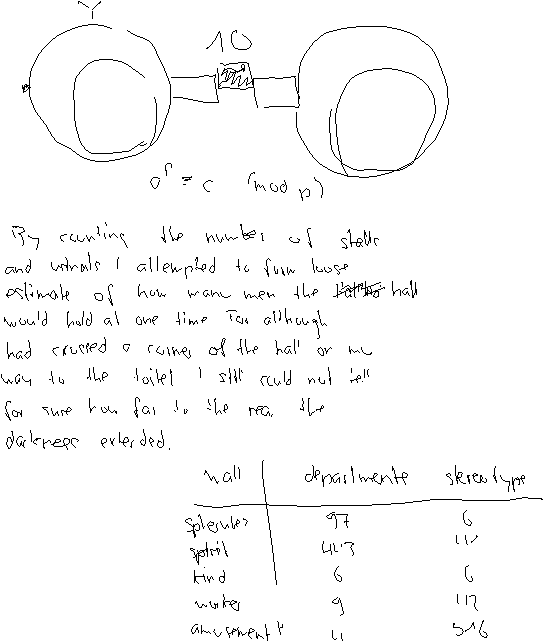 Y
10
a^p ≡ c (mod p)
By counting the number of stalls
and urinals I attempted to form loose
estimate of how many men the hall
would hold at one time For although
had crossed a corner of the hall on my
way to the toilet I still could not tell
for sure how far to the rear the
darkness extended.
hall departments stereotype
97 6
spirit
kind 6 6
worker 9 112
amusement 516